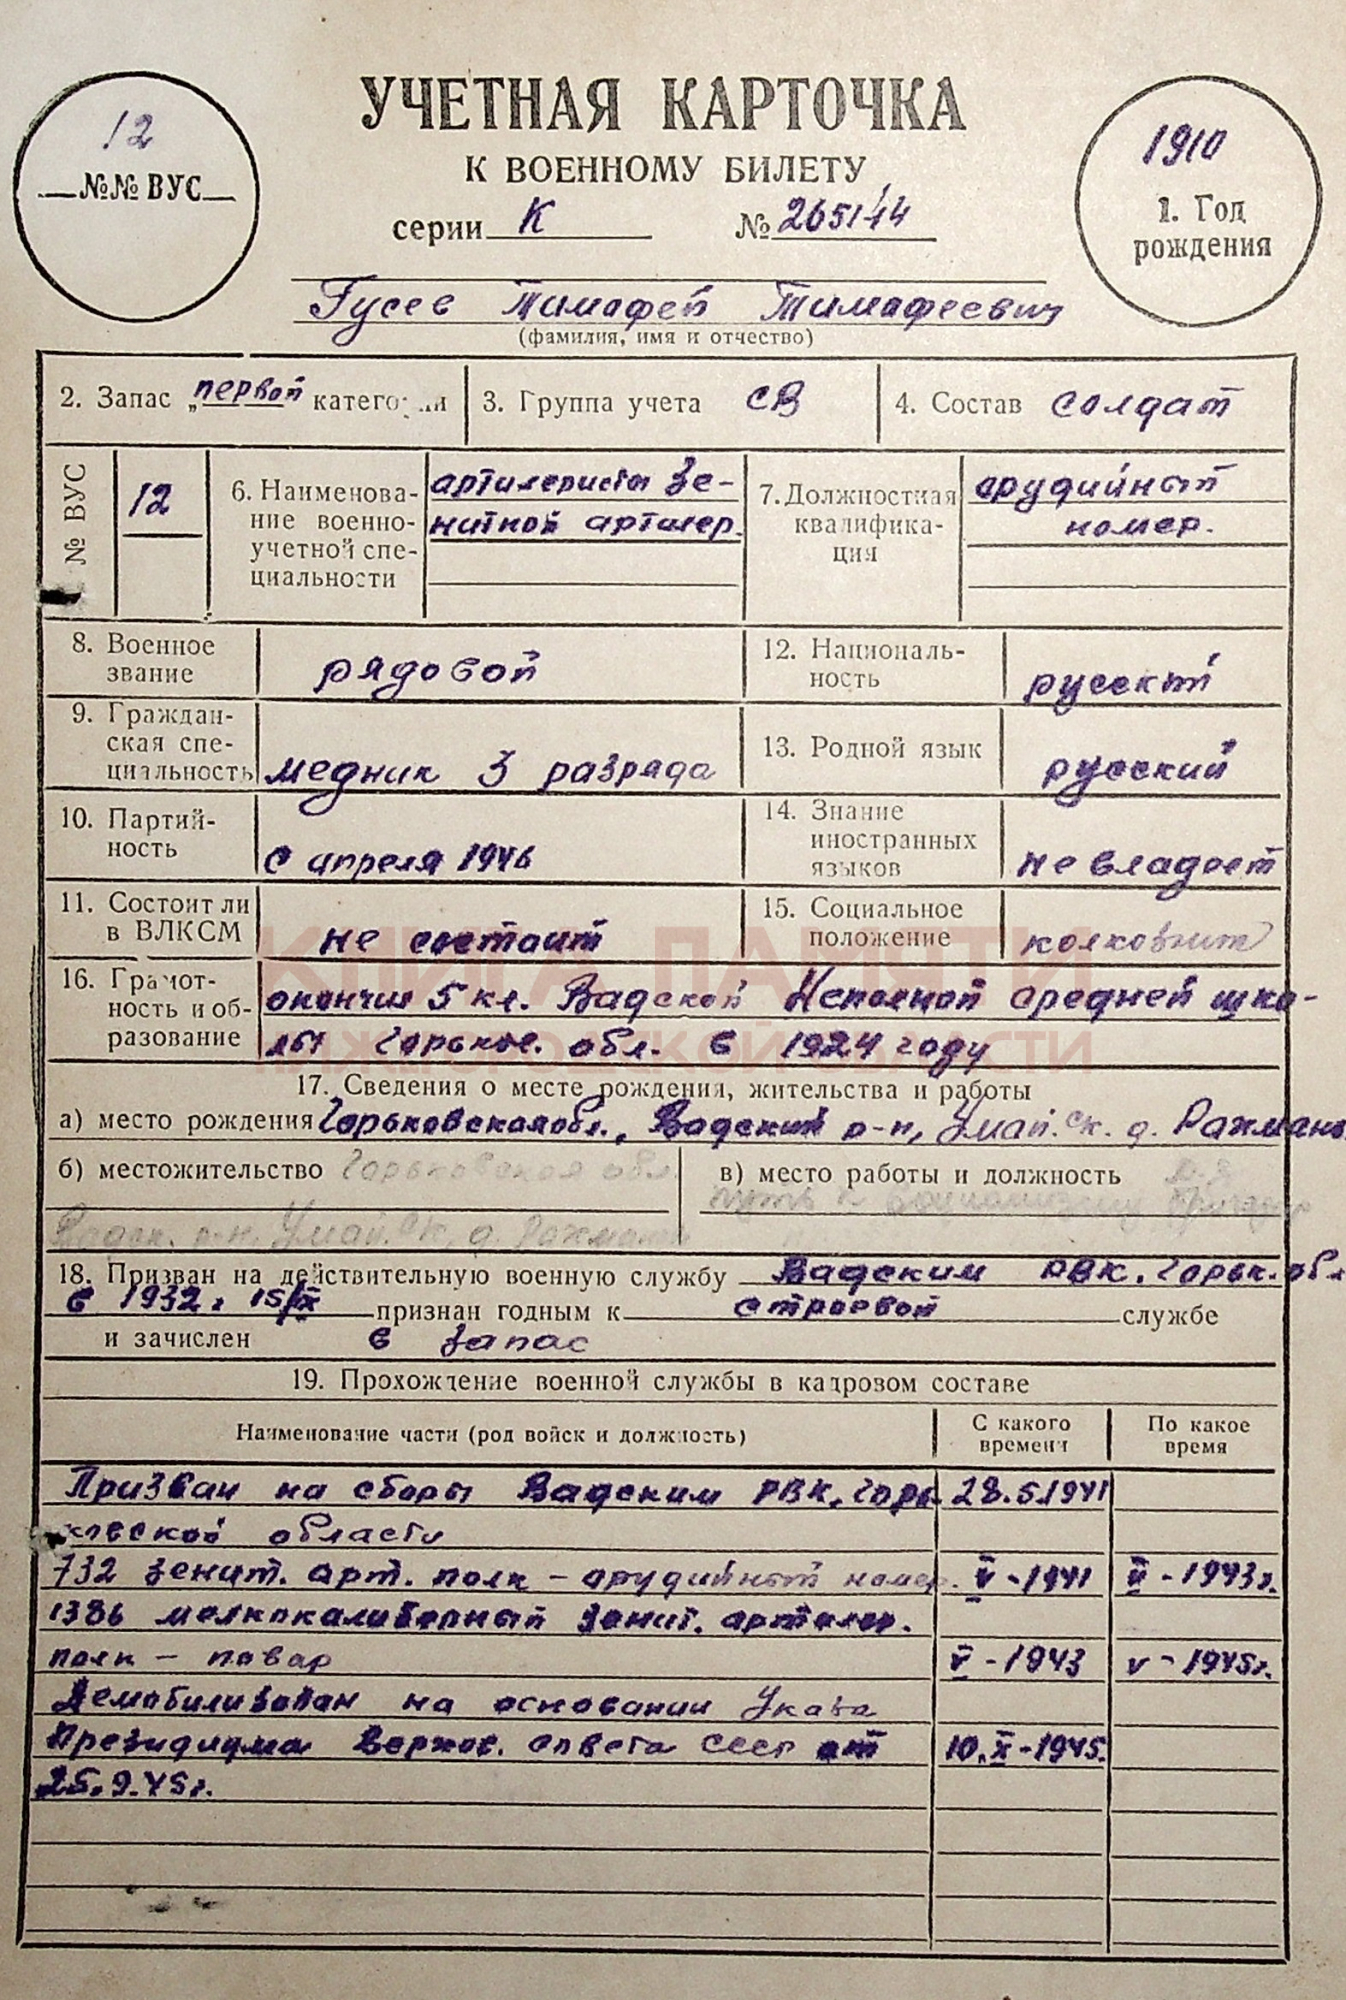 УЧЕТНАЯ КАРТОЧКА
К ВОЕННОМУ БИЛЕТУ
серии К № 265144
12
№№ ВУС
1910
1. Год
рождения
Гусев Тимафей Тимафеевич
(фамилия, имя и отчество)
2. Запас „первой категории
3. Группа учета СВ
4. Состав солдат
№ ВУС
12
6. Наименова-
ние военно-
учетной спе-
циальности
артилеристы зе-
нитной артилер.
7. Должностная
квалифика-
ция
орудийный
номер.
8. Военное
звание
рядовой
12. Националь-
ность
русский
9. Граждан-
ская спе-
циальность
медник 3 разряда
13. Родной язык
русский
10. Партий-
ность
с апреля 1946
14. Знание
иностранных
языков
не владеет
11. Состоит ли
в ВЛКСМ
не состоит
15. Социальное
положение
колхозник
16. Грамот-
ность и об-
разование
окончил 5 кл. Вадской Неполной средней шко-
лы Горьков. обл. в 1924 году
КНИГА ПАМЯТИ
НИЖЕГОРОДСКОЙ ОБЛАСТИ
17. Сведения о месте рождения, жительства и работы
а) место рождения Горьковская обл., Вадский р-н, Умай. ск. д. Рахмано
б) местожительство Горьковская обл.
Вадск. р-н, Умай. ск, д. Рахмано
в) место работы и должность
путь к социализму
18. Призван на действительную военную службу Вадским РВК. Горьк. обл
в 1932 г. 15/IX признан годным к строевой службе
и зачислен в запас
19. Прохождение военной службы в кадровом составе
Наименование части (род войск и должность)
С какого
времени
По какое
время
Призван на сборы Вадским РВК, Горь- 28.5.1941
ковской области
732 зенит. арт. полк – орудийный номер. V - 1941 V - 1943 г.
1386 мелкокалиберный зенит. артилер.
полк – повар V - 1943 V - 1945 г.
Демобилизован на основании Указа
Президиума Верхов. совета СССР от 10. X - 1945.
25.9.45 г.